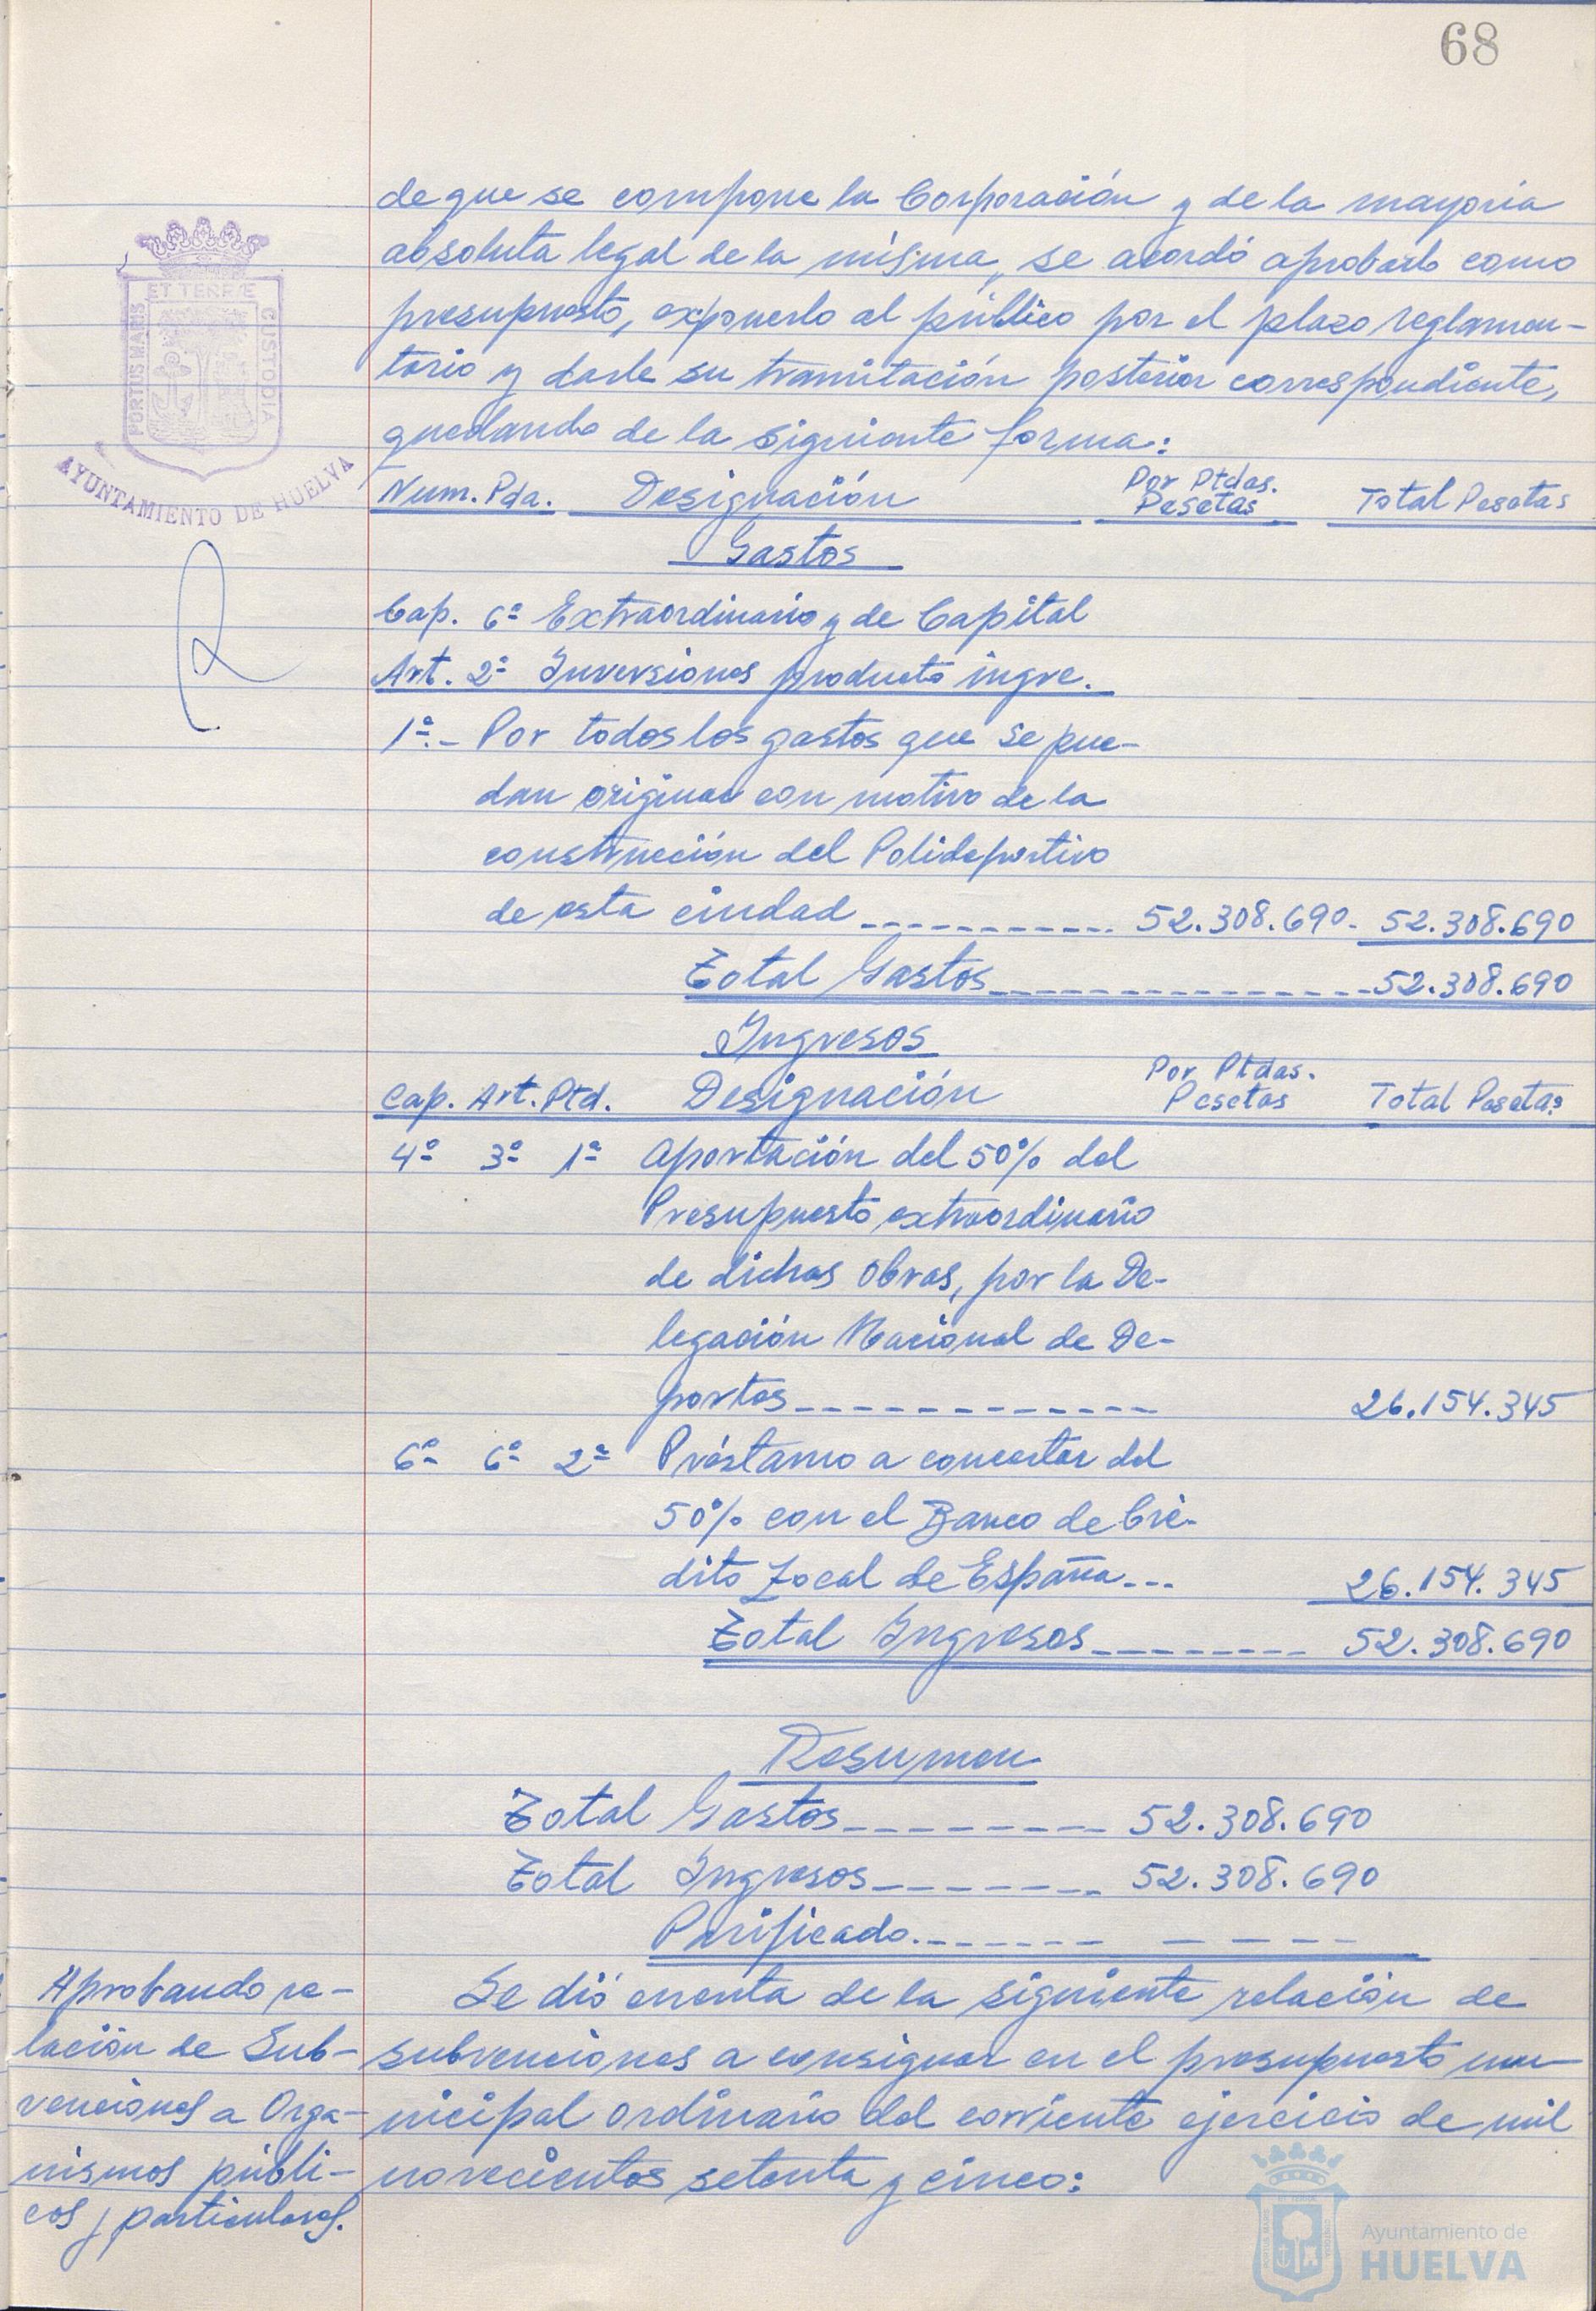 68
de que se compone la Corporación y de la mayoría
absoluta legal de la misma, se acordó aprobarlo como
presupuesto, exponerlo al público por el plazo reglamen-
tario y darle su tramitación posterior correspondiente,
quedando de la siguiente forma:
ET TERRÆ
PORTUS MARIS
CUSTODIA
AYUNTAMIENTO DE HUELVA
Num. Pda. Designación Por Ptdas. Pesetas Total Pesetas
Gastos
Cap. 6º Extraordinario y de Capital
Art. 2º Inversiones producto ingre.
1ª.- Por todos los gastos que se pue-
dan originar con motivo de la
construcción del Polideportivo
de esta ciudad ----------- 52.308.690- 52.308.690
Total Gastos --------------- 52.308.690
Ingresos
Cap. Art. Ptd. Designación Por Ptdas. Pesetas Total Pesetas
4º 3º 1ª Aportación del 50% del
Presupuesto extraordinario
de dichas obras, por la De-
legación Nacional de De-
portes ------------- 26.154.345
6º 6º 2ª Préstamo a concertar del
50% con el Banco de Cré-
dito Local de España --- 26.154.345
Total Ingresos -------- 52.308.690
Resumen
Total Gastos --------- 52.308.690
Total Ingresos ------- 52.308.690
Purificado.------- - - - - -
Aprobando re-
lación de Sub-
venciones a Orga-
nismos públi-
cos y particulares.
Se dió cuenta de la siguiente relación de
subvenciones a consignar en el presupuesto mu-
nicipal ordinario del corriente ejercicio de mil
novecientos setenta y cinco:
Ayuntamiento de
HUELVA